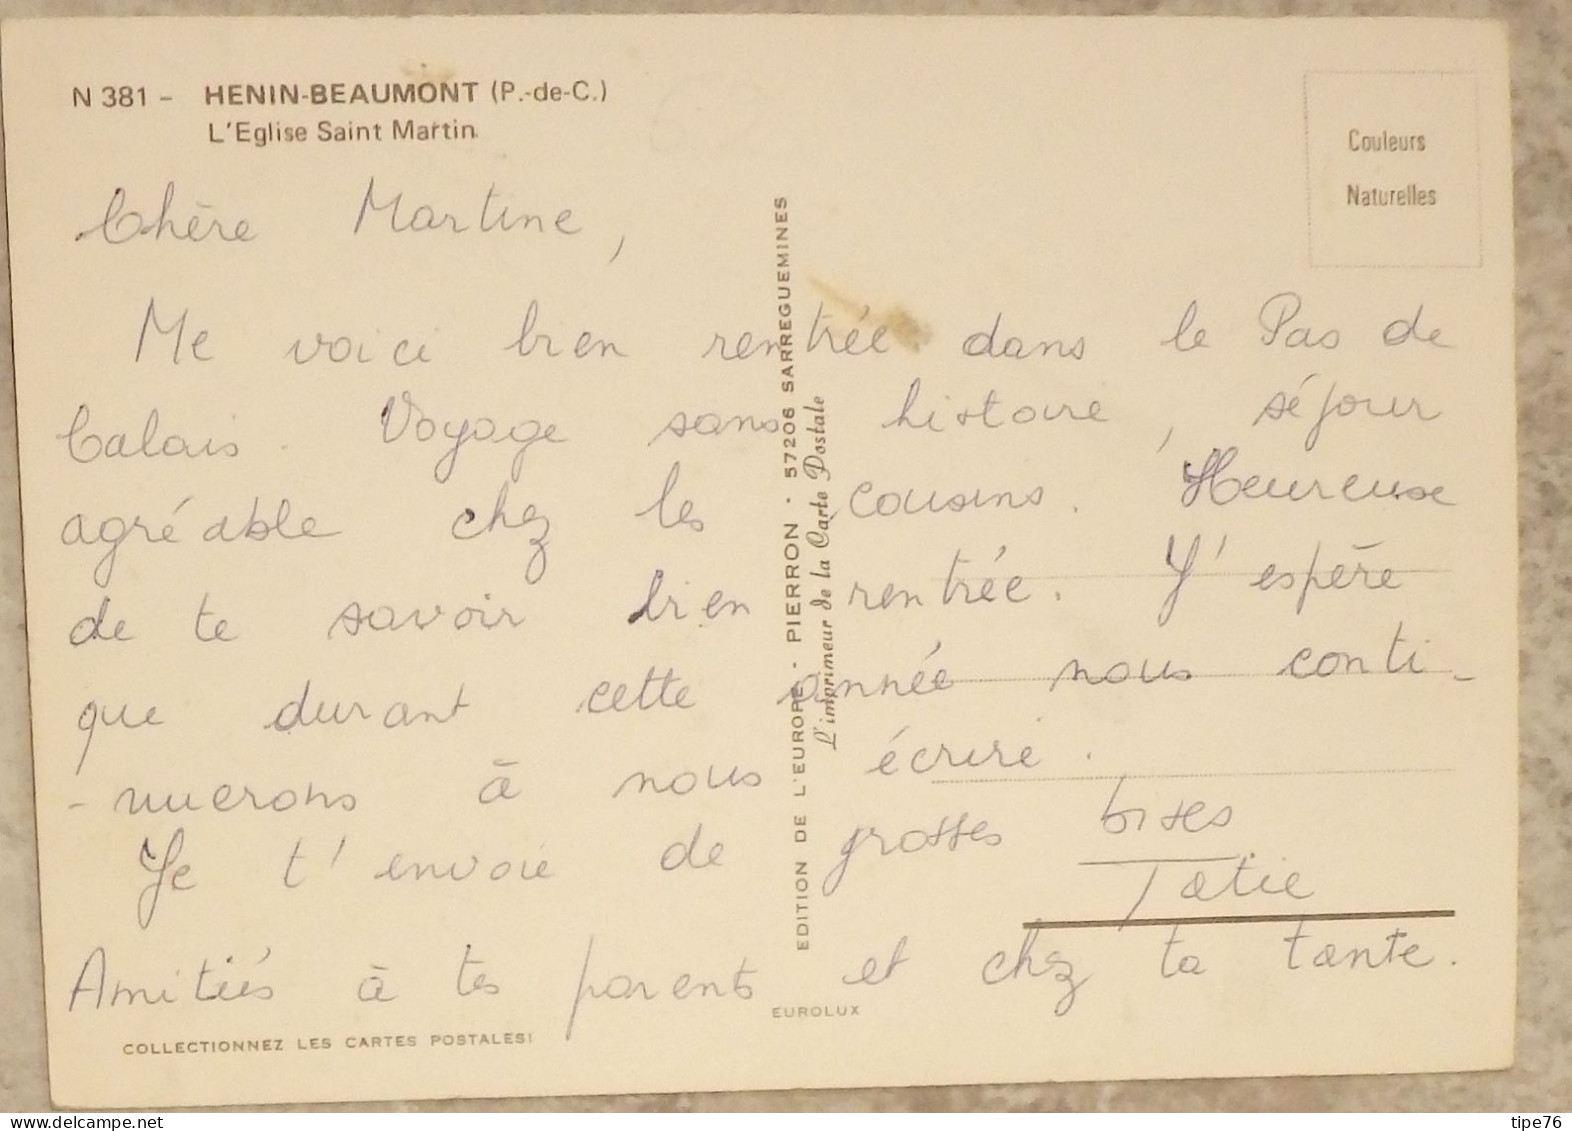 N 381 - HENIN-BEAUMONT (P.-de-C.)
L'Eglise Saint Martin
Couleurs
Naturelles
Chère Martine,
Me voici bien rentrée dans le Pas de
Calais. Voyage sans histoire, séjour
agréable chez les cousins. Heureuse
de te savoir bien rentrée. J'espère
que durant cette année nous conti-
-nuerons à nous écrire.
Je t'envoie de grosses bises.
Tatie
Amitiés à tes parents et chez ta tante.
EDITION DE L'EUROPE - PIERRON - 57206 SARREGUEMINES
L'imprimeur de la Carte Postale
EUROLUX
COLLECTIONNEZ LES CARTES POSTALES!
tipe76